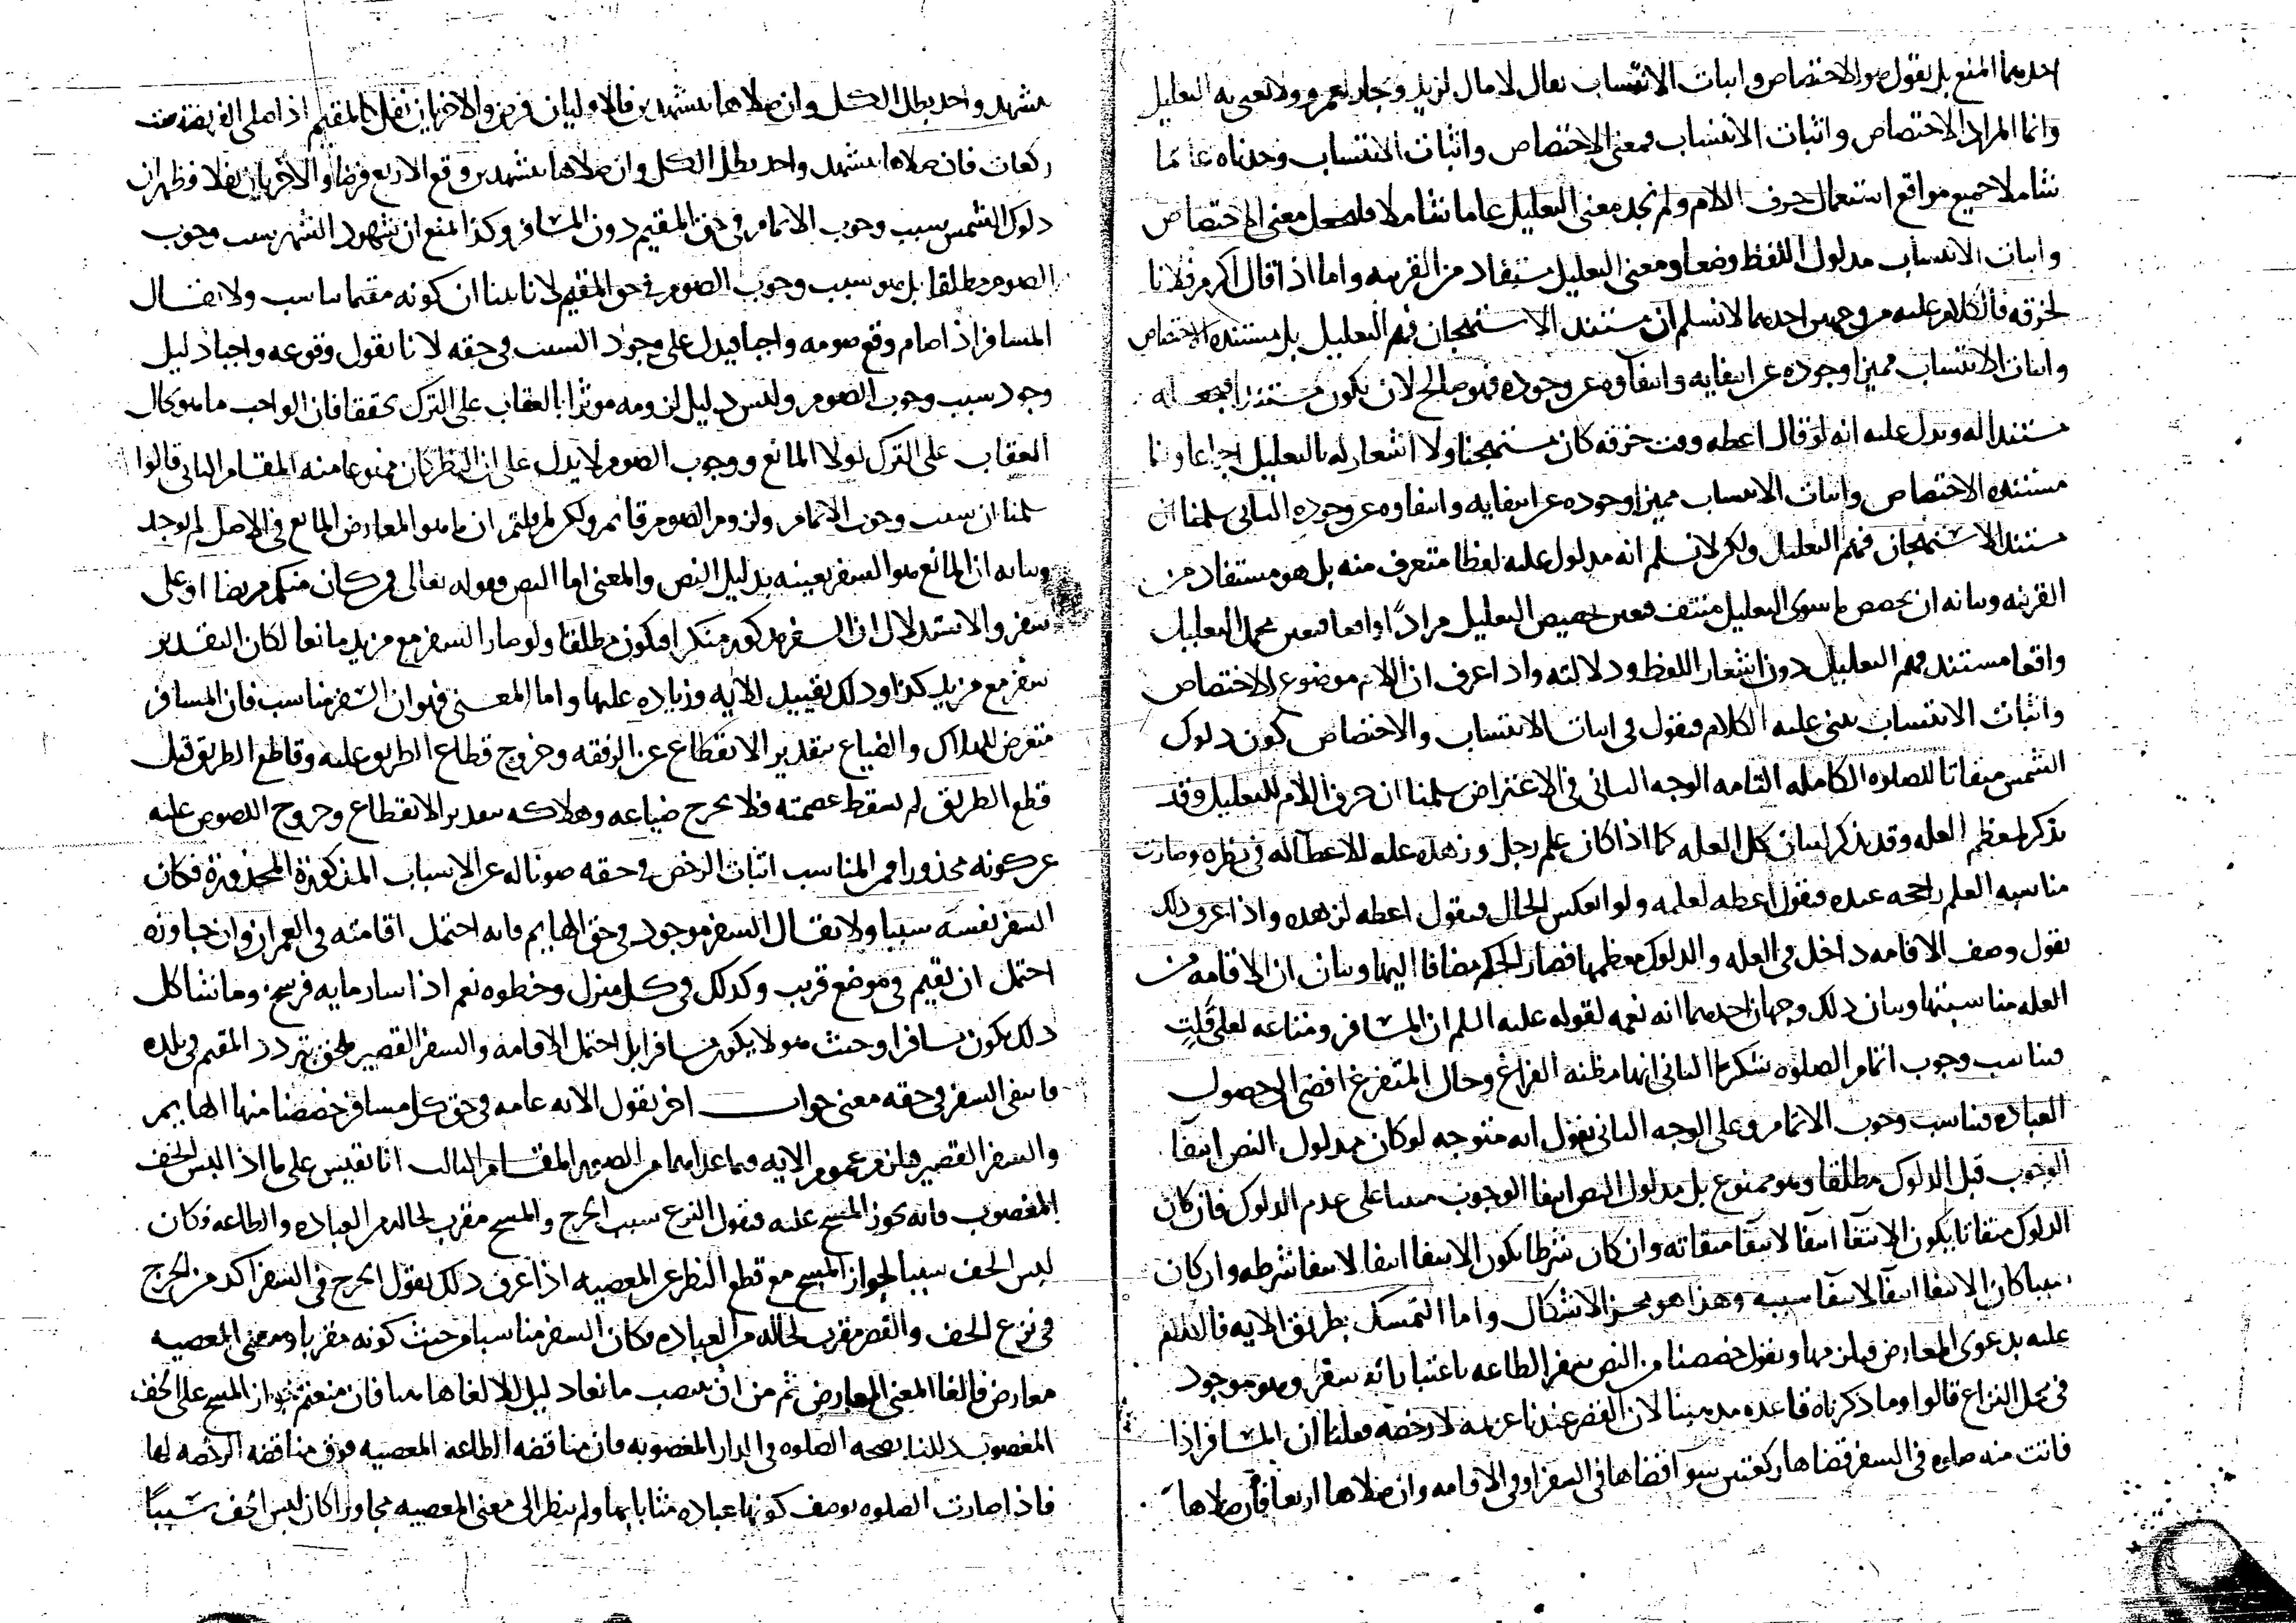 احدهما المنع بل نقول هو الاختصاص واثبات الانتساب يقال لا مال لزيد وجار لعمرو ولا نعني به التعليل
وانما المراد الاختصاص واثبات الانتساب فمعنى الاختصاص واثبات الانتساب وجدناه عاما
شاملا جميع مواقع استعمال حرف اللام ولم نجد معنى التعليل عاما شاملا فلنجعل معنى الاختصاص
واثبات الانتساب مدلول اللفظ وضعا ومعنى التعليل مستفاد من القرينه واما اذا قال اكرم فلانا
لخرقه فالكلام عليه من وجهين احدهما لا نسلم ان مستند الاستهجان فهم التعليل بل مستنده الاختصاص
واثبات الانتساب مميزا وجوده عن انتفايه وانتفاوه عن وجوده فهو صالح لان يكون مستندا فيجعله
مستندا له ويدل عليه انه لو قال اعطه وقت خرقه كان مستهجنا ولا اشعار له بالتعليل اجماعا وانما
مستنده الاختصاص واثبات الانتساب مميزا وجوده عن انتفايه وانتفاوه عن وجوده الثاني سلمنا ان
مستند الاستهجان فهم التعليل ولكن لا نسلم انه مدلول عليه لفظا متعرف منه بل هو مستفاد من
القرينه وبيانه ان تخصص ما سوى التعليل منتف فتعين تخصيص التعليل مرادا واقعا فتعين محمل التعليل
واقعا مستند فهم التعليل دون اشعار اللفظ ودلالته واذا عرف ان اللام موضوع للاختصاص
واثبات الانتساب يبنى عليه الكلام فنقول في اثبات الانتساب والاختصاص كون دلوك
الشمس ميقاتا للصلوه الكامله التامه الوجه الثاني في الاعتراض سلمنا ان حرف اللام للتعليل وقد
يذكر لمعظم العله وقد يذكر لبيان كل العله كما اذا كان علم رجل وزهده عله للاعطا له في نظره وصارت
مناسبه العلم راجحه عنده فنقول اعطه لعلمه ولو انعكس الحال فنقول اعطه لزهده واذا عرف ذلك
نقول وصف الاقامه داخل في العله والدلوك معظمها فصار الحكم مضافا اليها وبيان ان الاقامه من
العله مناسبتها وبيان ذلك وجهان احدهما انه نعمه لقوله عليه السلم ان المسافر ومتاعه لعلى قلت
فناسب وجوب اتمام الصلوه شكرا الثاني انها مظنه الفراغ وحال المتفرغ افضى الى حصول
العباده فناسب وجوب الاتمام وعلى الوجه الثاني نقول انه متوجه لو كان مدلول النص انتفا
الوجوب قبل الدلوك مطلقا وهو ممنوع بل مدلول النص انتفا الوجوب مبنيا على عدم الدلوك فان كان
الدلوك ميقاتا يكون الانتفا انتفا لانتفا ميقاته وان كان شرطا يكون الانتفا انتفا لانتفا شرطه وان كان
سببا كان الانتفا انتفا لانتفا سببه وهذا هو محز الاشكال واما التمسك بطريق الايه فالكلام
عليه بدعوى المعارض فيلزمها ونقول خصصنا من النص سفر الطاعه باعتبار انه سفر وهو موجود
في محل النزاع قالوا وما ذكرناه قاعده مذهبنا لان القصر عندنا عزيمه لا رخصه فعلنا ان المسافر اذا
فاتت منه صلوه في السفر قضاها ركعتين سوا قضاها في السفر او في الاقامه وان صلاها اربعا فان صلاها
بتشهد واحد بطل الكل وان صلاها بتشهدين فالاوليان فرض والاخريان نفل كالمقيم اذا صلى الفريضه ست
ركعات فان صلاها بتشهد واحد بطل الكل وان صلاها بتشهدين وقع الاربع فرضا والاخريان نفلا فظهر ان
دلوك الشمس سبب وجوب الاتمام في حق المقيم دون المسافر وكذا نمنع ان شهود الشهر سبب وجوب
الصوم مطلقا بل هو سبب وجوب الصوم في حق المقيم لانا بينا ان كونه مقيما مناسب ولا يقال
المسافر اذا صام وقع صومه واجبا فيدل على وجود السبب في حقه لانا نقول وقوعه واجبا دليل
وجود سبب وجوب الصوم وليس دليل لزومه موثرا بالعقاب على الترك تحققا فان الواجب ما هو بحال
العقاب على الترك لولا المانع ووجوب الصوم لا يدل على ان الفطر كان ممنوعا منه المقام الثاني قالوا
سلمنا ان سبب وجوب الاتمام ولزوم الصوم قايم ولكن لم قلتم ان ما هو المعارض المانع في الاصل لم يوجد
وبيانه ان المانع هو السفر بعينه بدليل النص والمعنى اما النص فقوله تعالى فمن كان منكم مريضا او على
سفر والاستدلال ان السفر مذكور منكرا فيكون مطلقا ولو صار السفر مع مزيد مانعا لكان التقدير
سفر مع مزيد كذا وذلك تقييد للايه وزياده عليها واما المعنى فهو ان السفر مناسب فان المسافر
متعرض للهلاك والضياع بتقدير الانقطاع عن الرفقه وخروج قطاع الطريق عليه وقاطع الطريق قبل
قطع الطريق لم يسقط عصمته فلا يخرج ضياعه وهلاكه بتقدير الانقطاع وخروج اللصوص عليه
عن كونه محذورا فمن المناسب اثبات الرخص في حقه صونا له عن الاسباب المذكورة المحذورة فكان
السفر نفسه سببا ولا يقال السفر موجود في حق الهايم فانه احتمل اقامته في العمران وان جاوزه
احتمل ان يقيم في موضع قريب وكذلك في كل منزل وخطوه نعم اذا سار مايه فرسخ وما شاكل
ذلك يكون مسافرا وحيث هو لا يكون مسافرا بل احتمل الاقامه والسفر القصير ملحق بتردد المقيم في بلده
فانتفى السفر في حقه معنى جواب اخر نقول الايه عامه في حق كل مسافر خصصنا منها الهايم
والسفر القصير فلزم عموم الايه فيما عداهما من الصور المقام الثالث انا نقيس على ما اذا لبس الخف
المغصوب فانه يجوز المسح عليه فنقول النزع سبب الحرج والمسح مقرب لحاله من العباده والطاعه فكان
لبس الخف سببا لجواز المسح مع قطع النظر عن المعصيه اذا عرف ذلك نقول الحرج في السفر اكد من الحرج
في نزع الخف والقصر مقرب لحاله من العباده فكان السفر مناسبا من حيث كونه مقربا ومعنى المعصيه
معارض فالغا المعنى المعارض ثم من ان ينتصب مانعا دليل لالغا هاهنا فان منعتم جواز المسح على الخف
المغصوب دللنا بصحه الصلوه في الدار المغصوبه فان مناقضه الطاعه المعصيه فوق مناقضه الرخصه لها
فاذا صارت الصلوه بوصف كونها عباده مثابا بها ولم ينظر الى معنى المعصيه مجاورا كان لبس الخف سببا